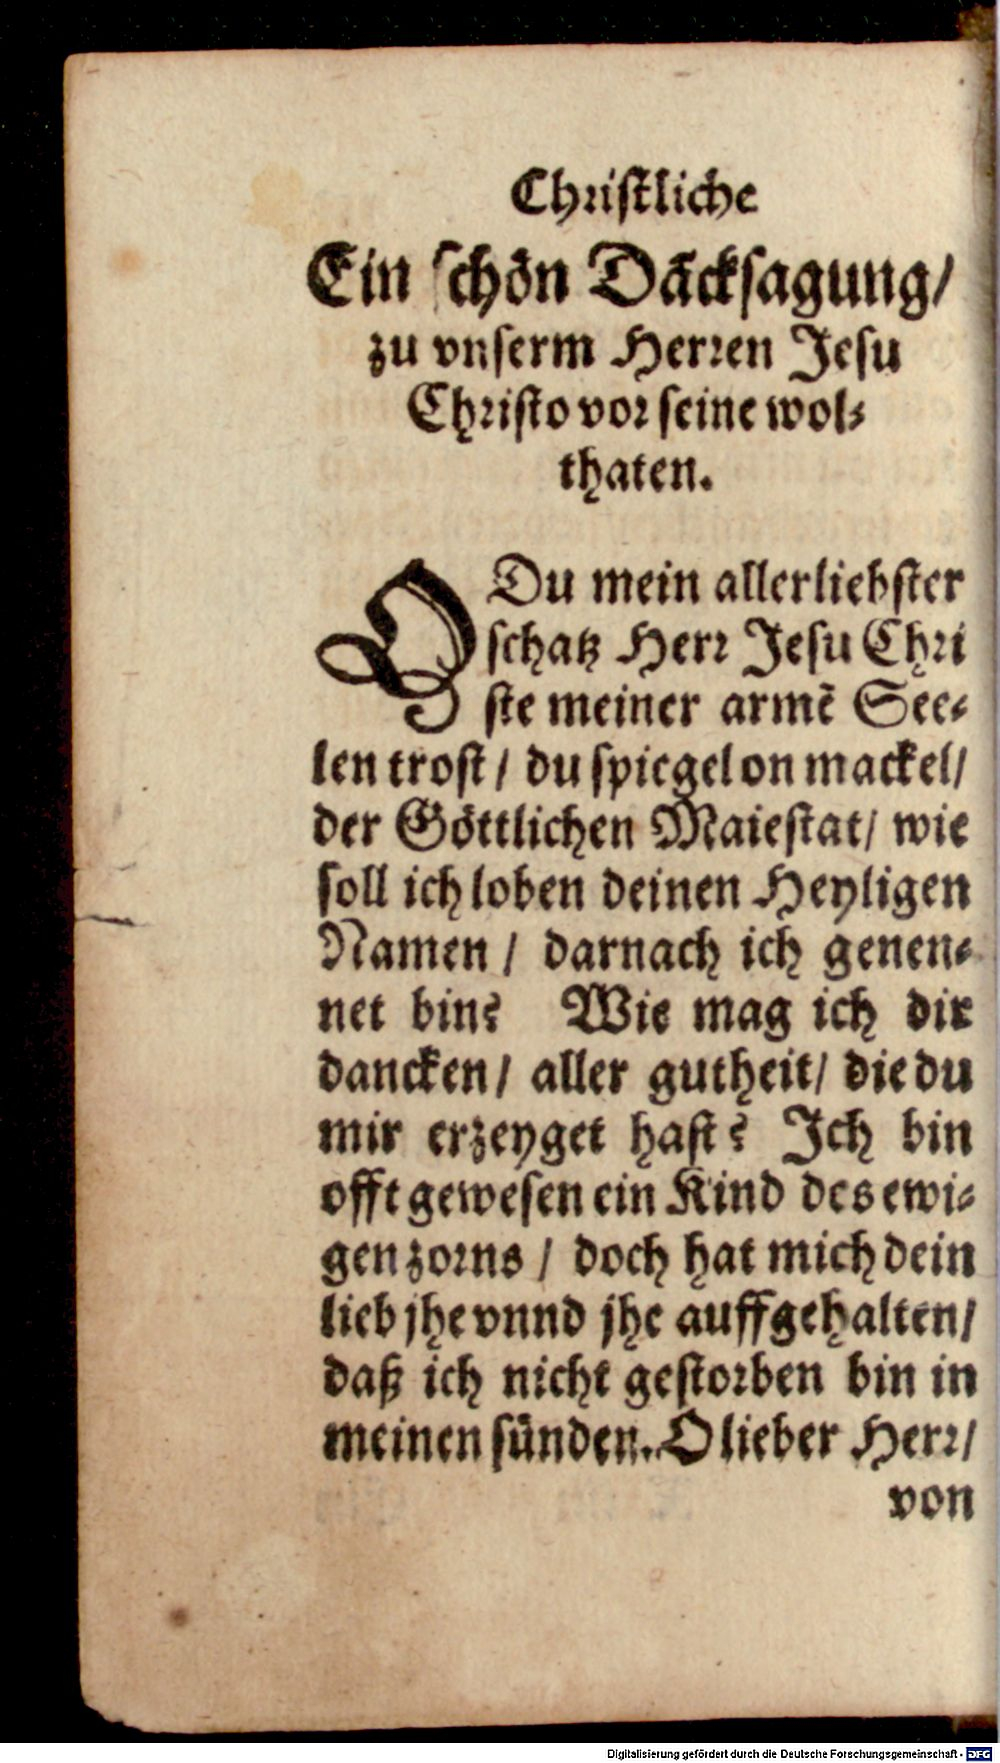 Christliche
Ein schön Dãcksagung/
zu vnserm Herren Jesu
Christo vor seine wol-
thaten.
O Du mein allerliebster
schatz Herr Jesu Chri
ste meiner armẽ See-
len trost / du spiegel on mackel/
der Göttlichen Maiestat/ wie
soll ich loben deinen Heyligen
Namen / darnach ich genen-
net bin? Wie mag ich dir
dancken / aller gutheit/ die du
mir erzeyget hast? Ich bin
offt gewesen ein Kind des ewi-
gen zorns / doch hat mich dein
lieb jhe vnnd jhe auffgehalten/
daß ich nicht gestorben bin in
meinen sünden. O lieber Herr/
von
Digitalisierung gefördert durch die Deutsche Forschungsgemeinschaft - DFG